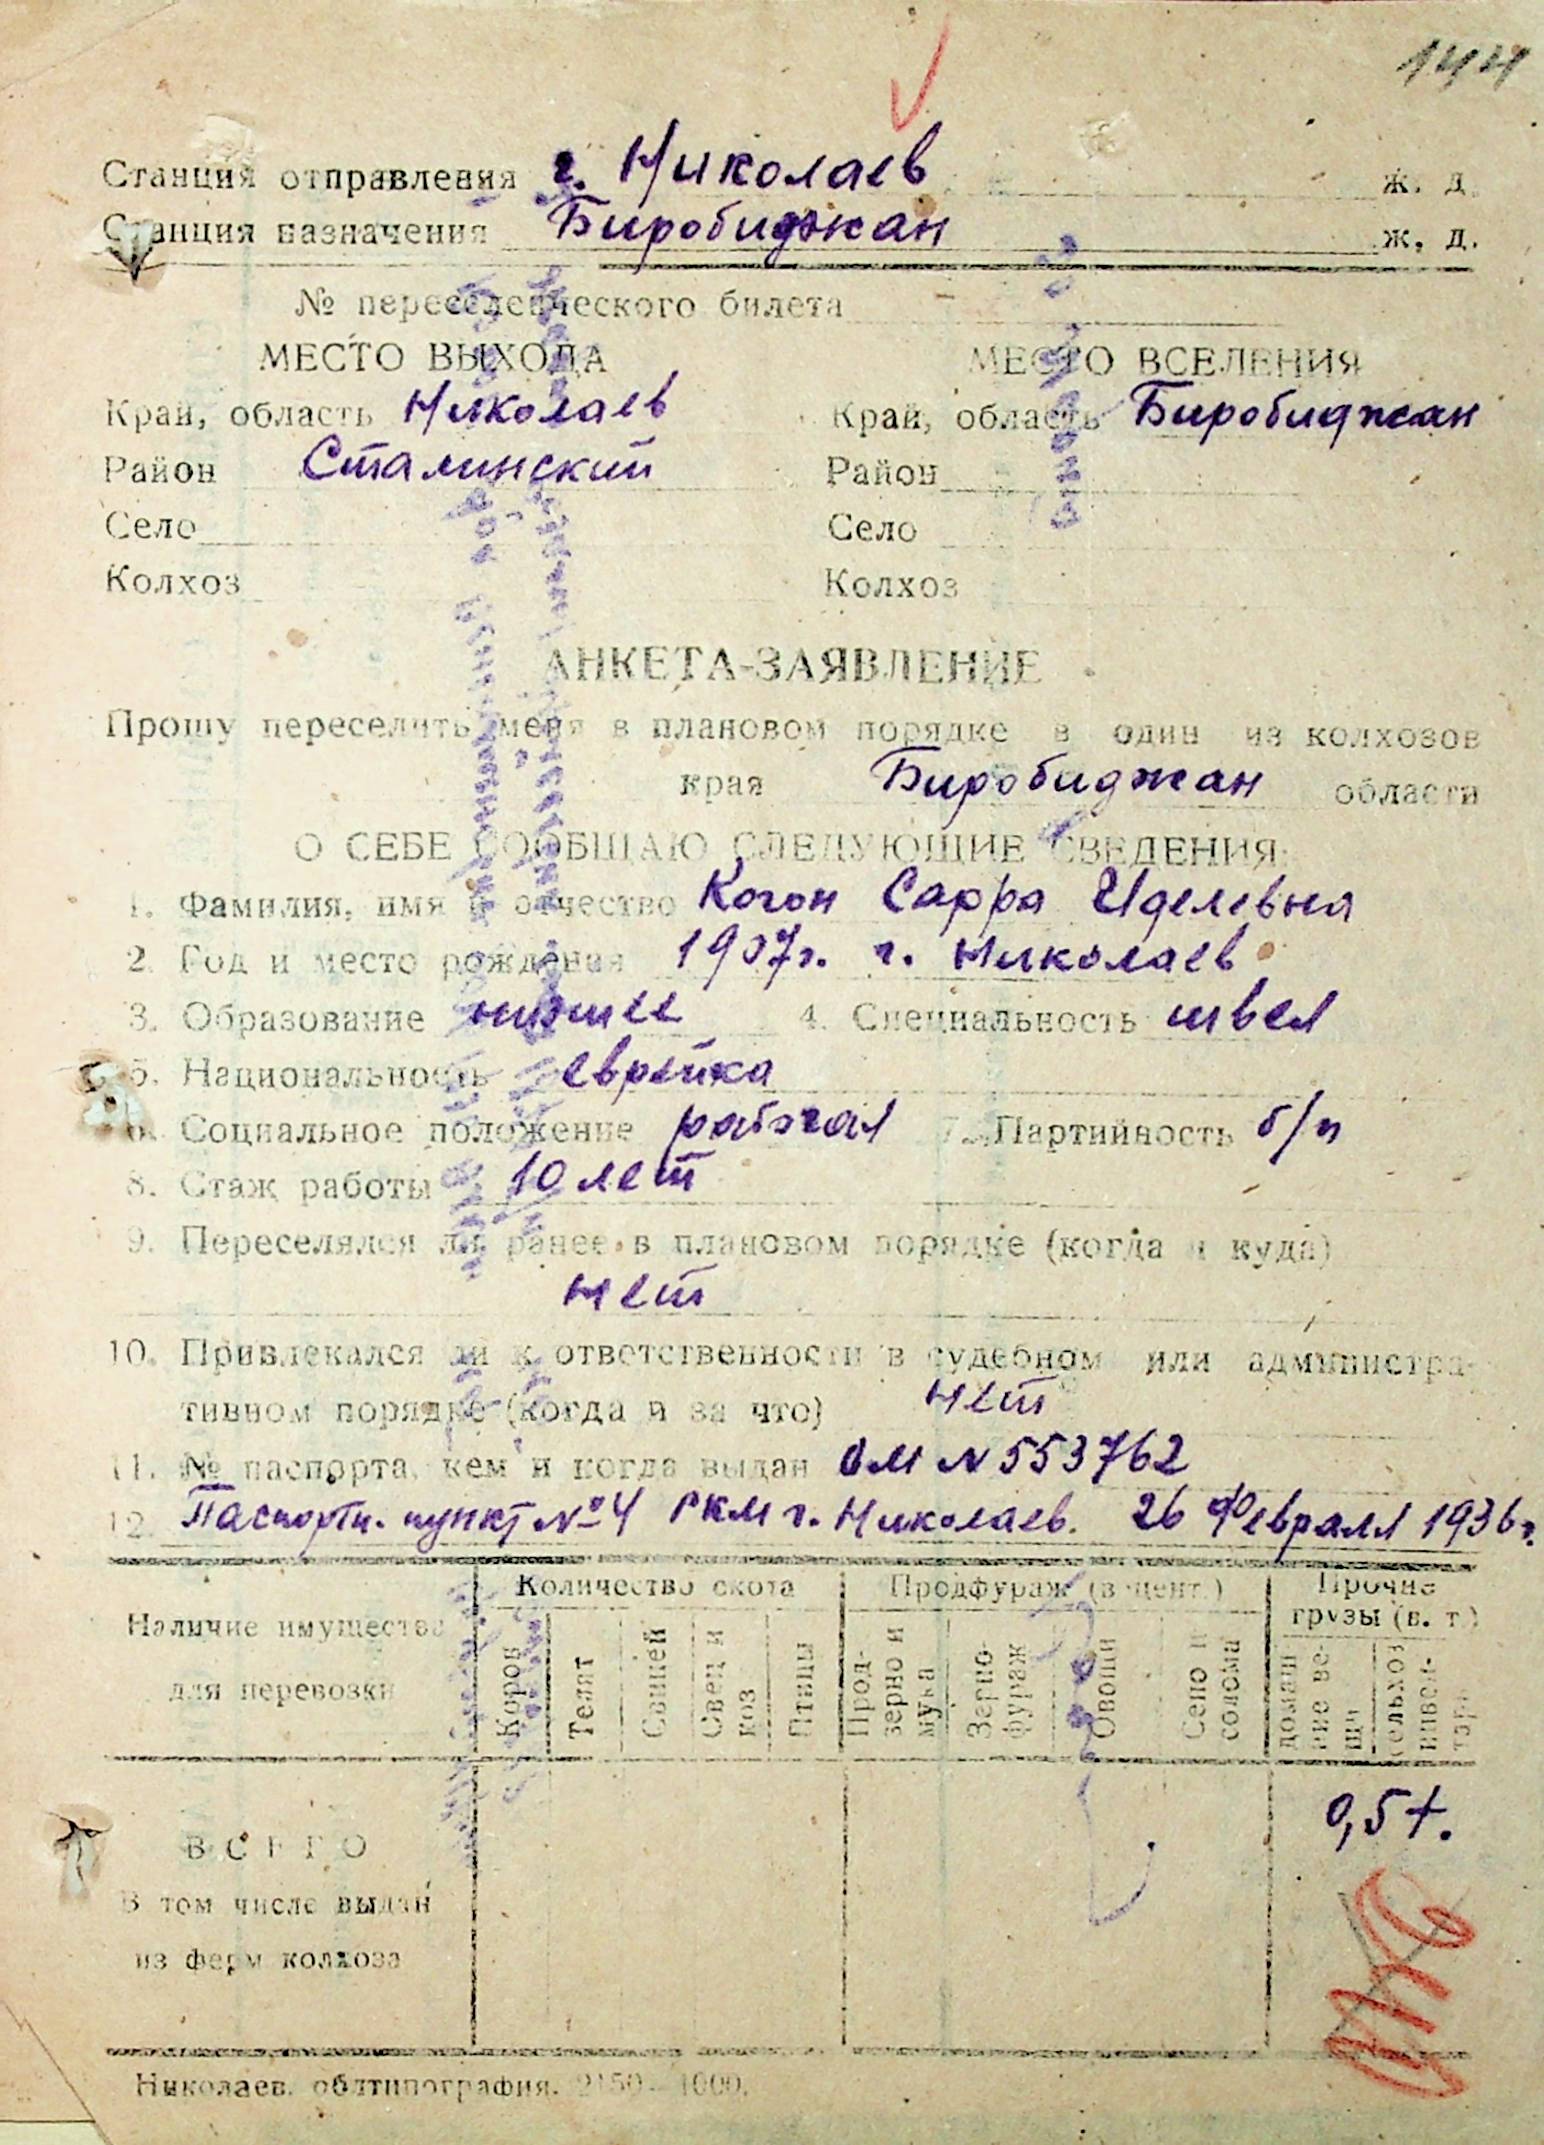 144
Станция отправления г. Николаев ж. д.
Станция назначения Биробиджан ж. д.
№ переселенческого билета
МЕСТО ВЫХОДА МЕСТО ВСЕЛЕНИЯ
Край, область Николаев Край, область Биробиджан
Район Сталинский Район
Село Село
Колхоз Колхоз
АНКЕТА-ЗАЯВЛЕНИЕ
Прошу переселить меня в плановом порядке в один из колхозов
края Биробиджан области
О СЕБЕ СООБЩАЮ СЛЕДУЮЩИЕ СВЕДЕНИЯ:
1. Фамилия, имя и отчество Когон Сарра Иделевна
2. Год и место рождения 1907г. г. Николаев
3. Образование низшее 4. Специальность швея
5. Национальность еврейка
6. Социальное положение рабочая 7. Партийность б/п
8. Стаж работы 10 лет
9. Переселялся ли ранее в плановом порядке (когда и куда)
нет
10. Привлекался ли к ответственности в судебном или администра-
тивном порядке (когда и за что) нет
11. № паспорта, кем и когда выдан ОМ N 553762
12. Паспортн. пункт №4 РКМ г. Николаев. 26 Февраля 1936г.
Наличие имущества для перевозки
Количество скота
Коров
Телят
Свиней
Овец и коз
Птицы
Продфураж (в цент.)
Прод-зерно и мука
Зерно-фураж
Овощи
Сено и солома
Прочие грузы (в. т.)
домашние вещи
сельхоз инвентарь
ВСЕГО 0,5 т.
В том числе выдан
из ферм колхоза
Николаев, облтипография. 2150—1000.